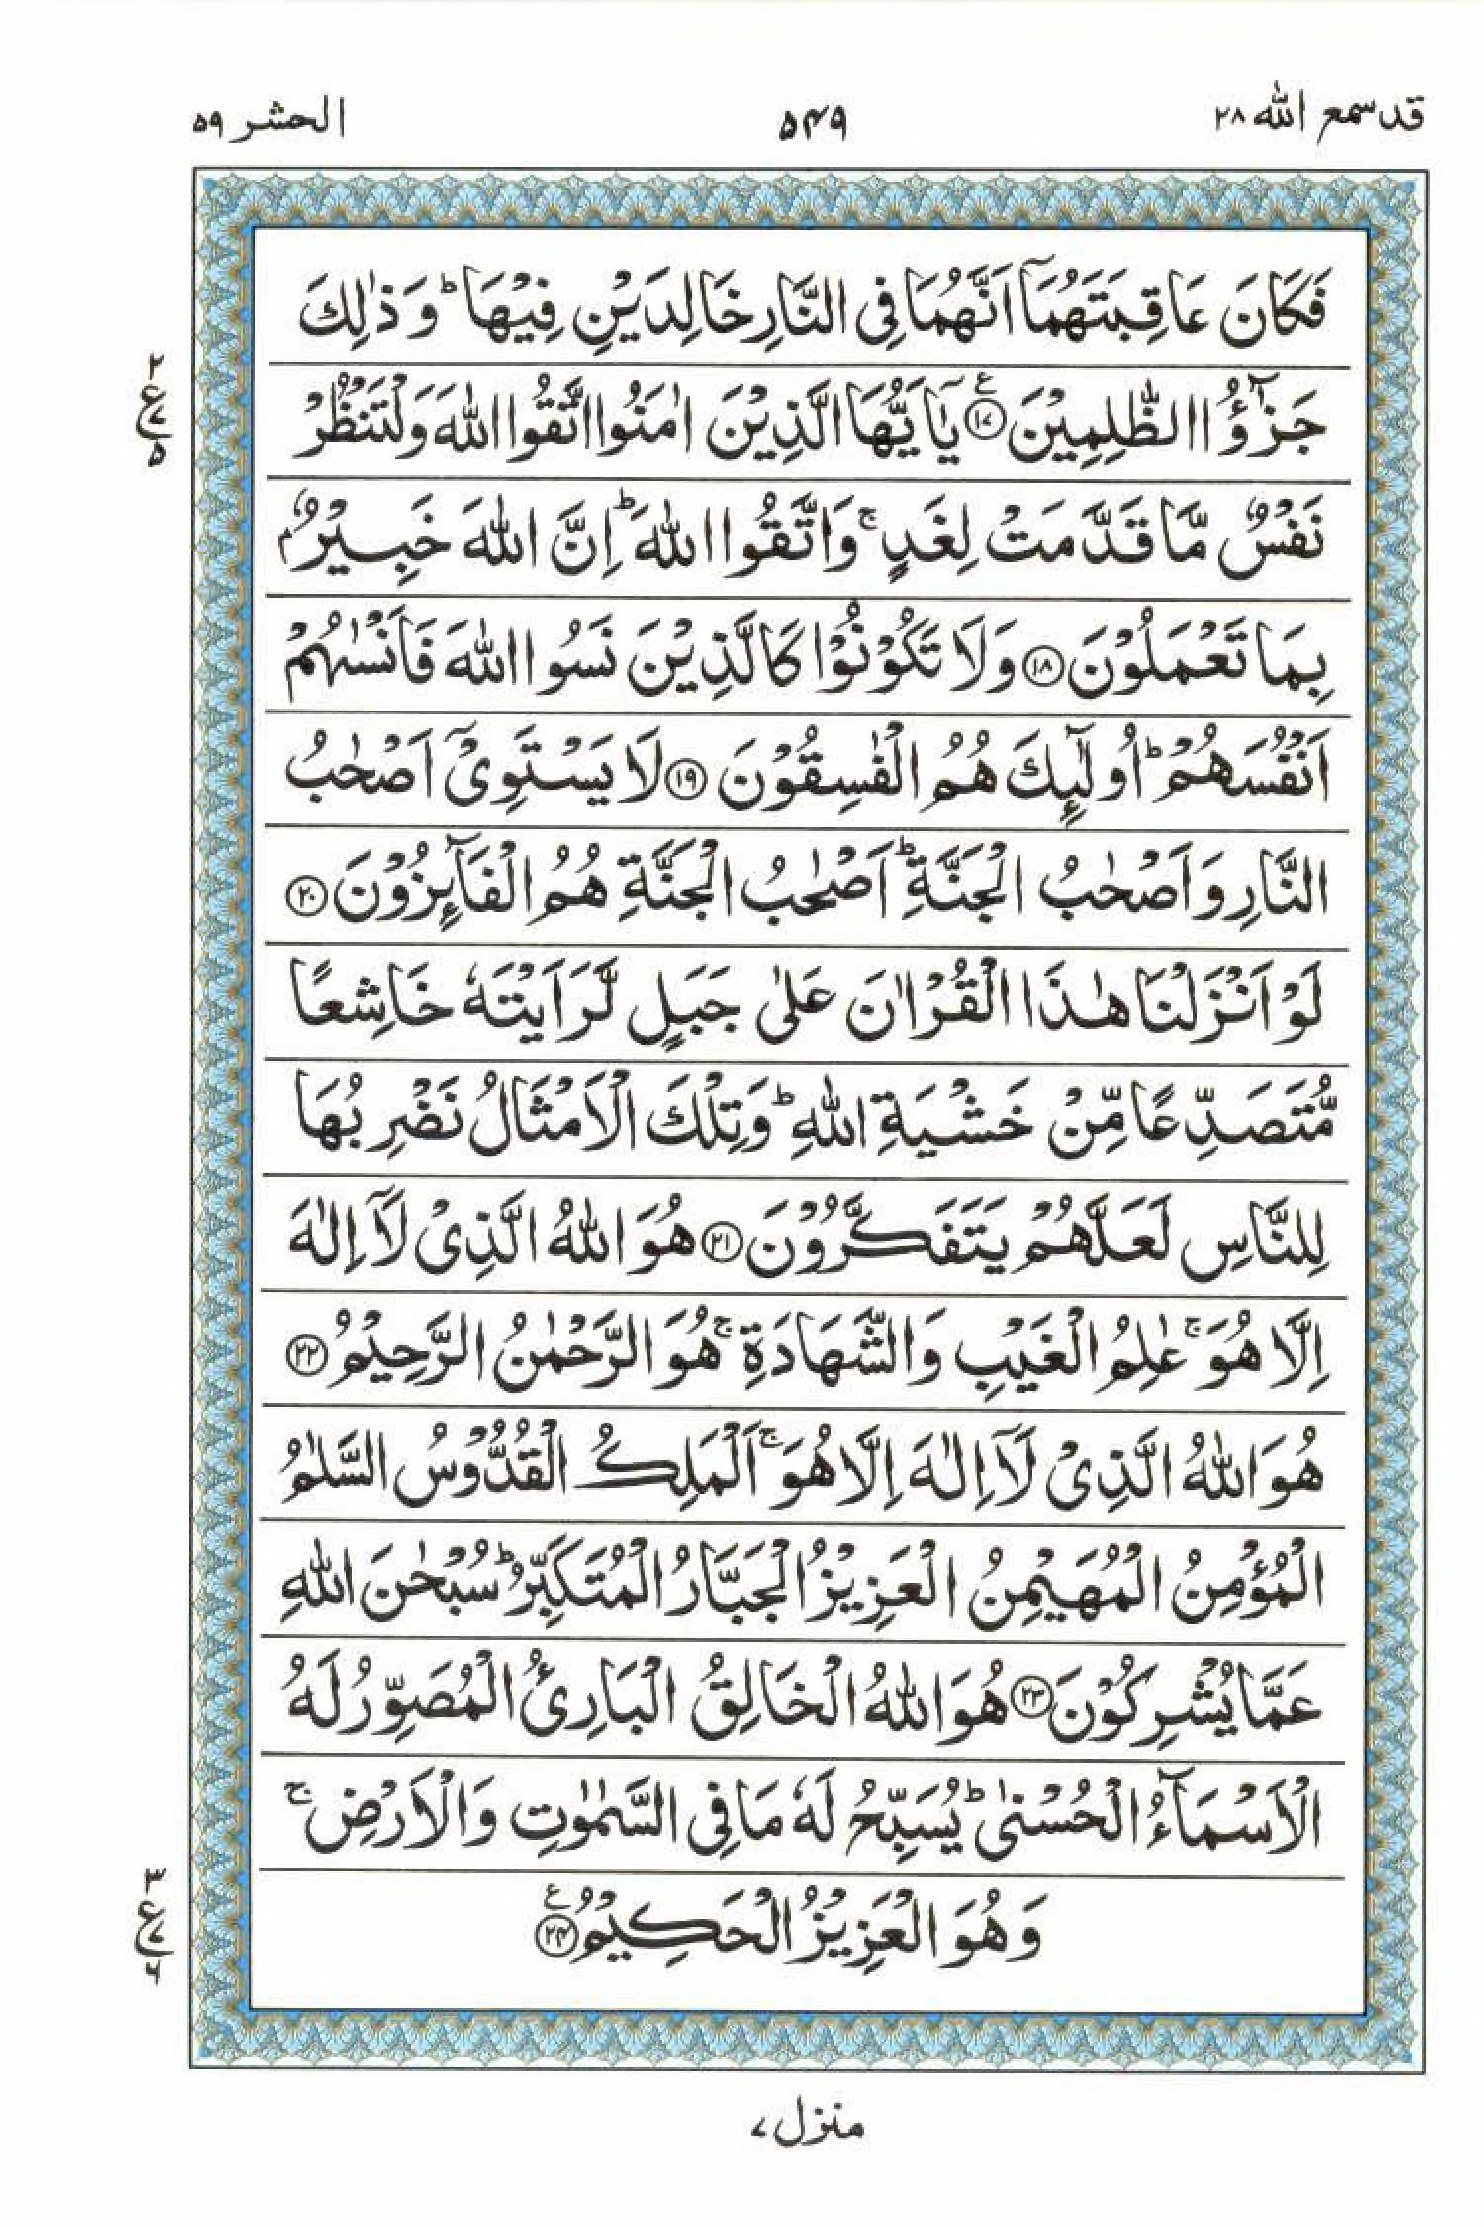 قد سمع الله ٢٨
٥٤٩
الحشر ٥٩
فَكَانَ عَاقِبَتَهُمَاۤ اَنَّهُمَا فِی النَّارِ خَالِدَیْنِ فِیْهَا ؕ وَ ذٰلِكَ
جَزٰٓؤُا الظّٰلِمِیْنَ ۧ‏﴿١٧﴾ یٰۤاَیُّهَا الَّذِیْنَ اٰمَنُوا اتَّقُوا اللّٰهَ وَ لْتَنْظُرْ
نَفْسٌ مَّا قَدَّمَتْ لِغَدٍ ۚ وَ اتَّقُوا اللّٰهَ ؕ اِنَّ اللّٰهَ خَبِیْرٌۢ
بِمَا تَعْمَلُوْنَ ﴿١٨﴾ وَ لَا تَكُوْنُوْا كَالَّذِیْنَ نَسُوا اللّٰهَ فَاَنْسٰىهُمْ
اَنْفُسَهُمْ ؕ اُولٰٓىِٕكَ هُمُ الْفٰسِقُوْنَ ﴿١٩﴾ لَا یَسْتَوِیْۤ اَصْحٰبُ
النَّارِ وَ اَصْحٰبُ الْجَنَّةِ ؕ اَصْحٰبُ الْجَنَّةِ هُمُ الْفَآىِٕزُوْنَ ﴿٢٠﴾
لَوْ اَنْزَلْنَا هٰذَا الْقُرْاٰنَ عَلٰی جَبَلٍ لَّرَاَیْتَهٗ خَاشِعًا
مُّتَصَدِّعًا مِّنْ خَشْیَةِ اللّٰهِ ؕ وَ تِلْكَ الْاَمْثَالُ نَضْرِبُهَا
لِلنَّاسِ لَعَلَّهُمْ یَتَفَكَّرُوْنَ ﴿٢١﴾ هُوَ اللّٰهُ الَّذِیْ لَاۤ اِلٰهَ
اِلَّا هُوَ ۚ عٰلِمُ الْغَیْبِ وَ الشَّهَادَةِ ۚ هُوَ الرَّحْمٰنُ الرَّحِیْمُ ﴿٢٢﴾
هُوَ اللّٰهُ الَّذِیْ لَاۤ اِلٰهَ اِلَّا هُوَ ۚ اَلْمَلِكُ الْقُدُّوْسُ السَّلٰمُ
الْمُؤْمِنُ الْمُهَیْمِنُ الْعَزِیْزُ الْجَبَّارُ الْمُتَكَبِّرُ ؕ سُبْحٰنَ اللّٰهِ
عَمَّا یُشْرِكُوْنَ ﴿٢٣﴾ هُوَ اللّٰهُ الْخَالِقُ الْبَارِئُ الْمُصَوِّرُ لَهُ
الْاَسْمَآءُ الْحُسْنٰی ؕ یُسَبِّحُ لَهٗ مَا فِی السَّمٰوٰتِ وَ الْاَرْضِ ۚ
وَ هُوَ الْعَزِیْزُ الْحَكِیْمُ ۧ‏﴿٢٤﴾
٢
ع
٧
٥
٣
ع
٧
٦
منزل ٧